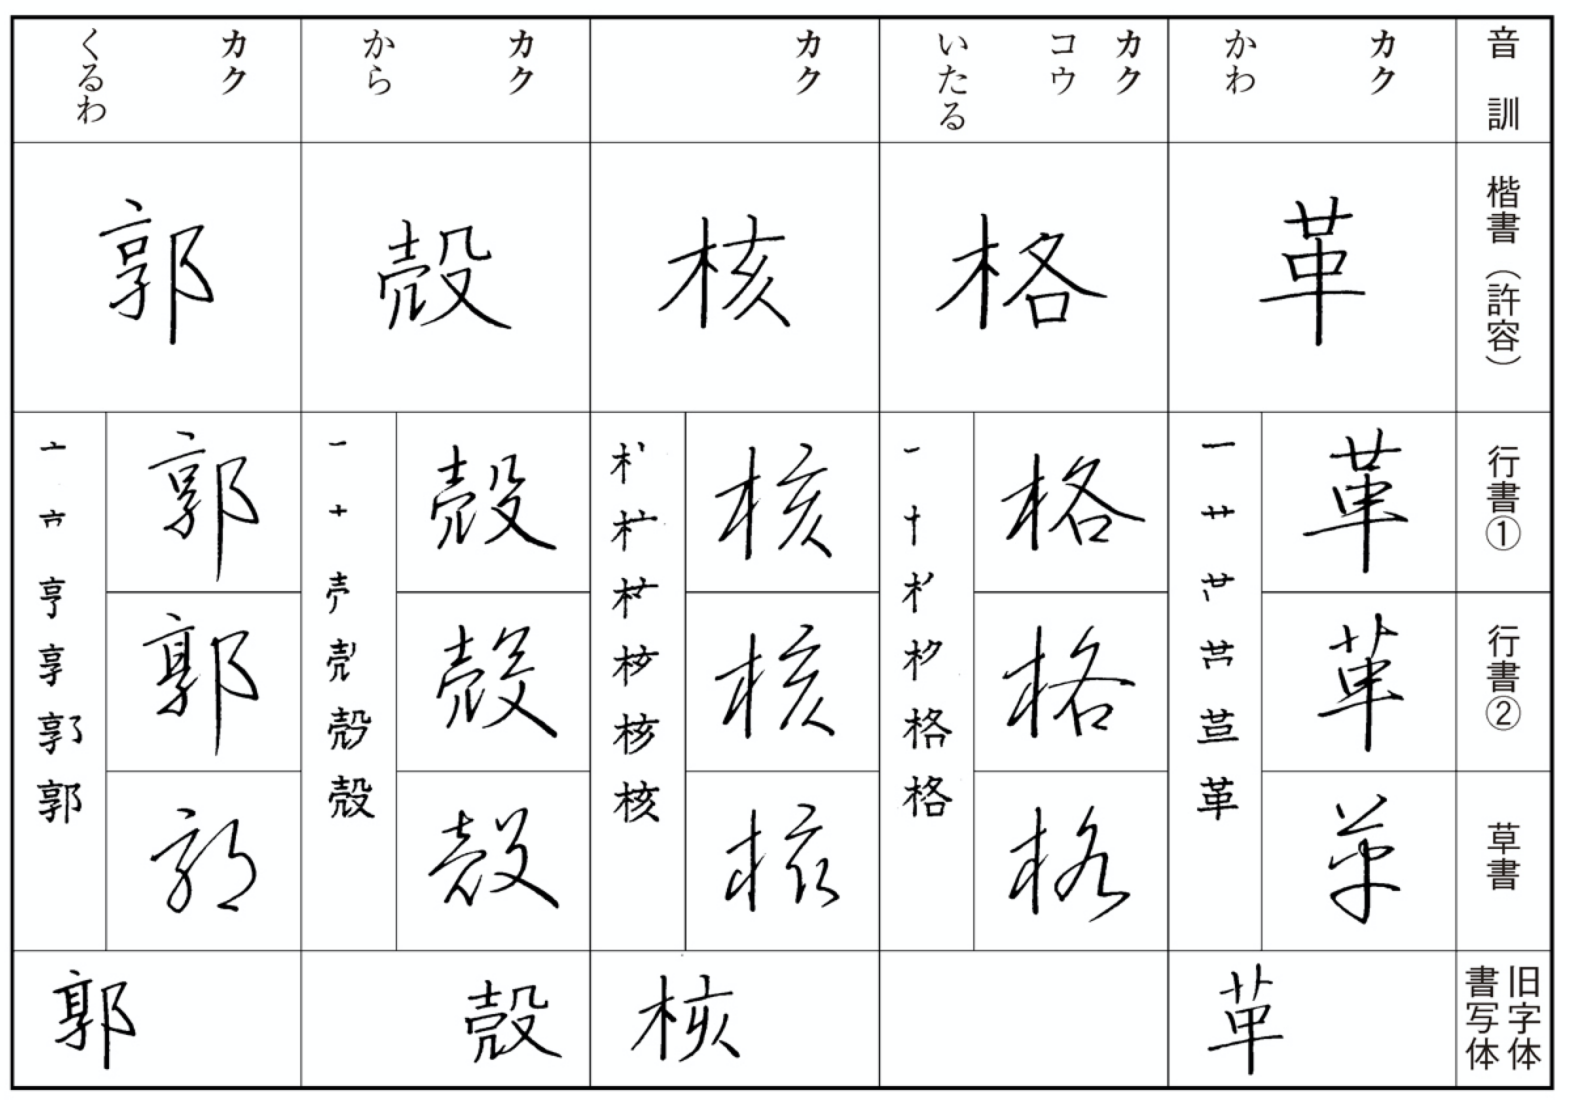 音訓
楷書（許容）
行書①
行書②
草書
旧字体
書写体
カク
かわ
革
革
革
革
一
廿
革
革
カク
コウ
いたる
格
格
格
格
一
十
格
格
カク
核
核
核
核
核
核
核
カク
から
殻
殻
殻
殻
一
十
殻
殼
カク
くるわ
郭
郭
郭
郭
亠
亨
享
郭
郭